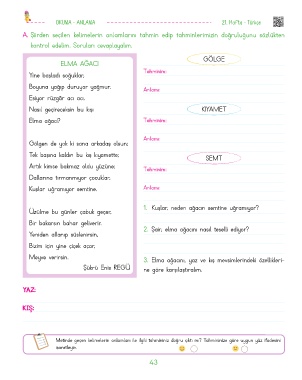 OKUMA - ANLAMA
21. Hafta - Türkçe
A. Şiirden seçilen kelimelerin anlamlarını tahmin edip tahminlerimizin doğruluğunu sözlükten
kontrol edelim. Soruları cevaplayalım.
ELMA AĞACI
Yine başladı soğuklar,
Boyuna yağıp duruyor yağmur.
Esiyor rüzgâr acı acı.
Nasıl geçireceksin bu kışı
Elma ağacı?
Gölgen de yok ki sana arkadaş olsun;
Tek başına kaldın bu kış kıyamette;
Artık kimse bakmaz oldu yüzüne;
Dallarına tırmanmıyor çocuklar,
Kuşlar uğramıyor semtine.
Üzülme bu günler çabuk geçer,
Bir bakarsın bahar geliverir.
Yeniden allanıp süslenirsin,
Bizim için yine çiçek açar,
Meyve verirsin.
Şükrü Enis REGÜ
GÖLGE
Tahminim:
Anlamı:
KIYAMET
Tahminim:
Anlamı:
SEMT
Tahminim:
Anlamı:
1. Kuşlar, neden ağacın semtine uğramıyor?
2. Şair, elma ağacını nasıl teselli ediyor?
3. Elma ağacını, yaz ve kış mevsimlerindeki özellikleri-
ne göre karşılaştıralım.
YAZ:
KIŞ:
Metinde geçen kelimelerin anlamları ile ilgili tahminimiz doğru çıktı mı? Tahminimize göre uygun yüz ifadesini
işaretleyin.
43